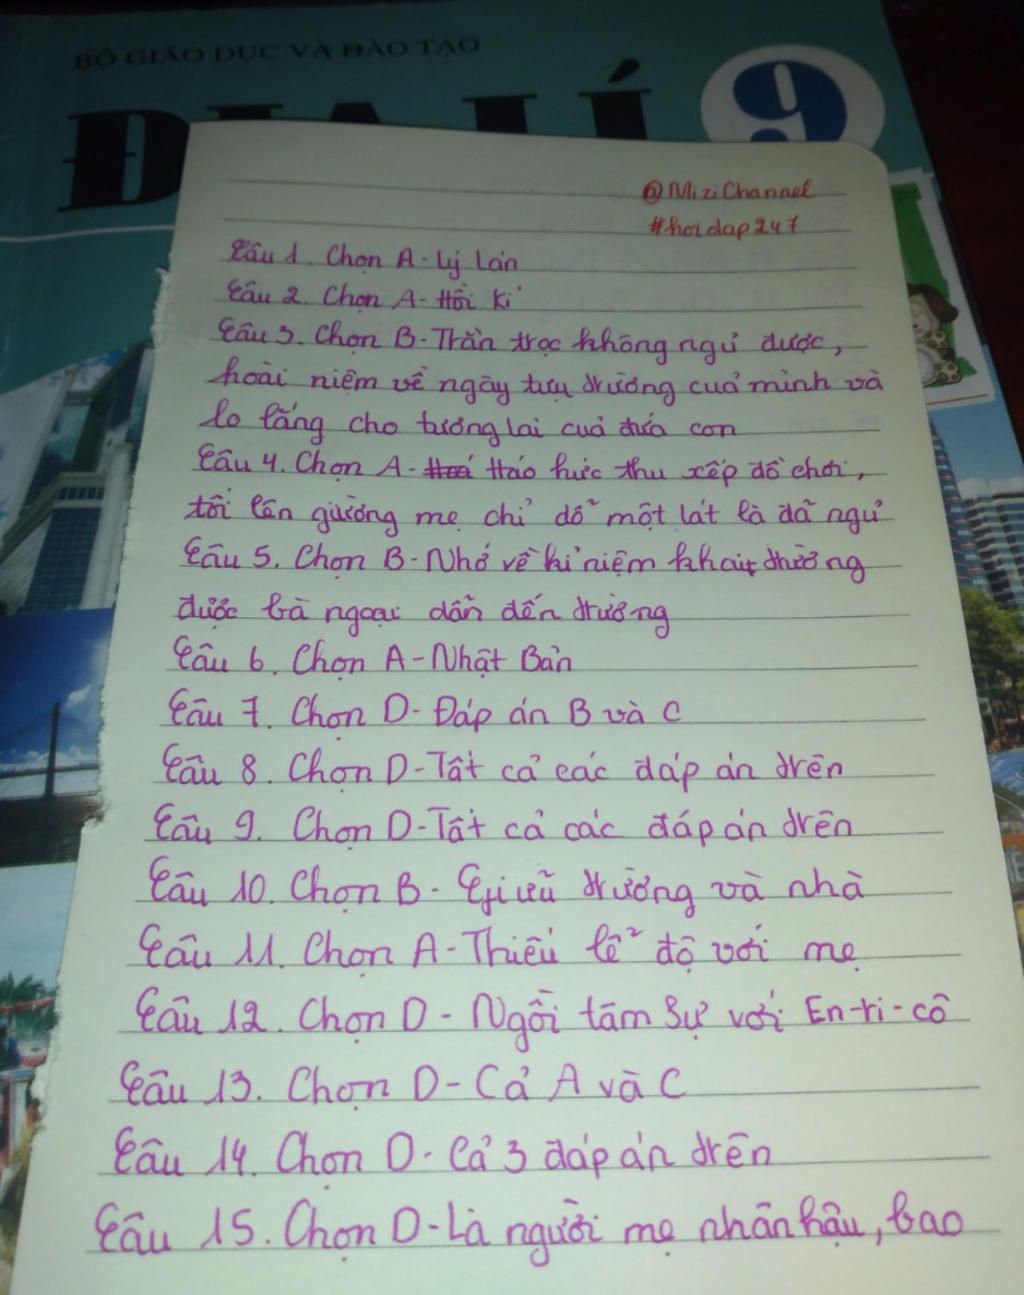 BỘ GIÁO DỤC VÀ ĐÀO TẠO
ĐỊA LÍ 9
@MiziChannel
#hoidap247
Câu 1. Chọn A - Lý Lán
Câu 2. Chọn A - Hồi kí
Câu 3. Chọn B - Trằn trọc không ngủ được,
hoài niệm về ngày tựu trường của mình và
lo lắng cho tương lai của đứa con
Câu 4. Chọn A - Háo hức thu xếp đồ chơi,
tối lên giường mẹ chỉ dỗ một lát là đã ngủ
Câu 5. Chọn B - Nhớ về kỉ niệm khai trường
được bà ngoại dẫn đến trường
Câu 6. Chọn A - Nhật Bản
Câu 7. Chọn D - Đáp án B và C
Câu 8. Chọn D - Tất cả các đáp án trên
Câu 9. Chọn D - Tất cả các đáp án trên
Câu 10. Chọn B - Giữa trường và nhà
Câu 11. Chọn A - Thiếu lễ độ với mẹ
Câu 12. Chọn D - Ngồi tâm sự với En-ri-cô
Câu 13. Chọn D - Cả A và C
Câu 14. Chọn D - Cả 3 đáp án trên
Câu 15. Chọn D - Là người mẹ nhân hậu, bao